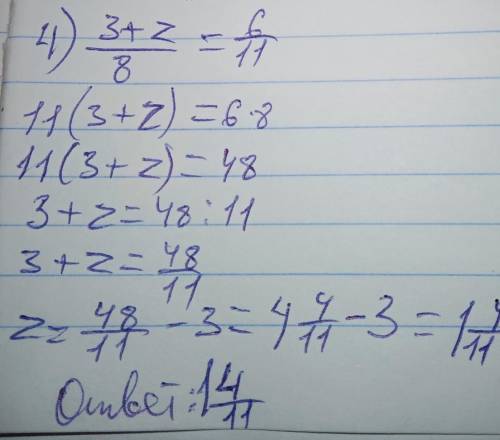 4) (3+z)/8 = 6/11
11(3+z)=6·8
11(3+z)=48
3+z=48:11
3+z=48/11
z=48/11-3=4 4/11-3=1 4/11
Ответ:1 4/11